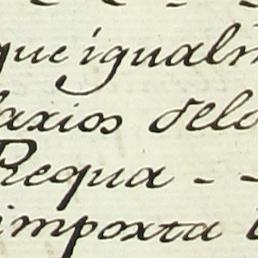 que igualm
laxios delo
Requa - -
importa l